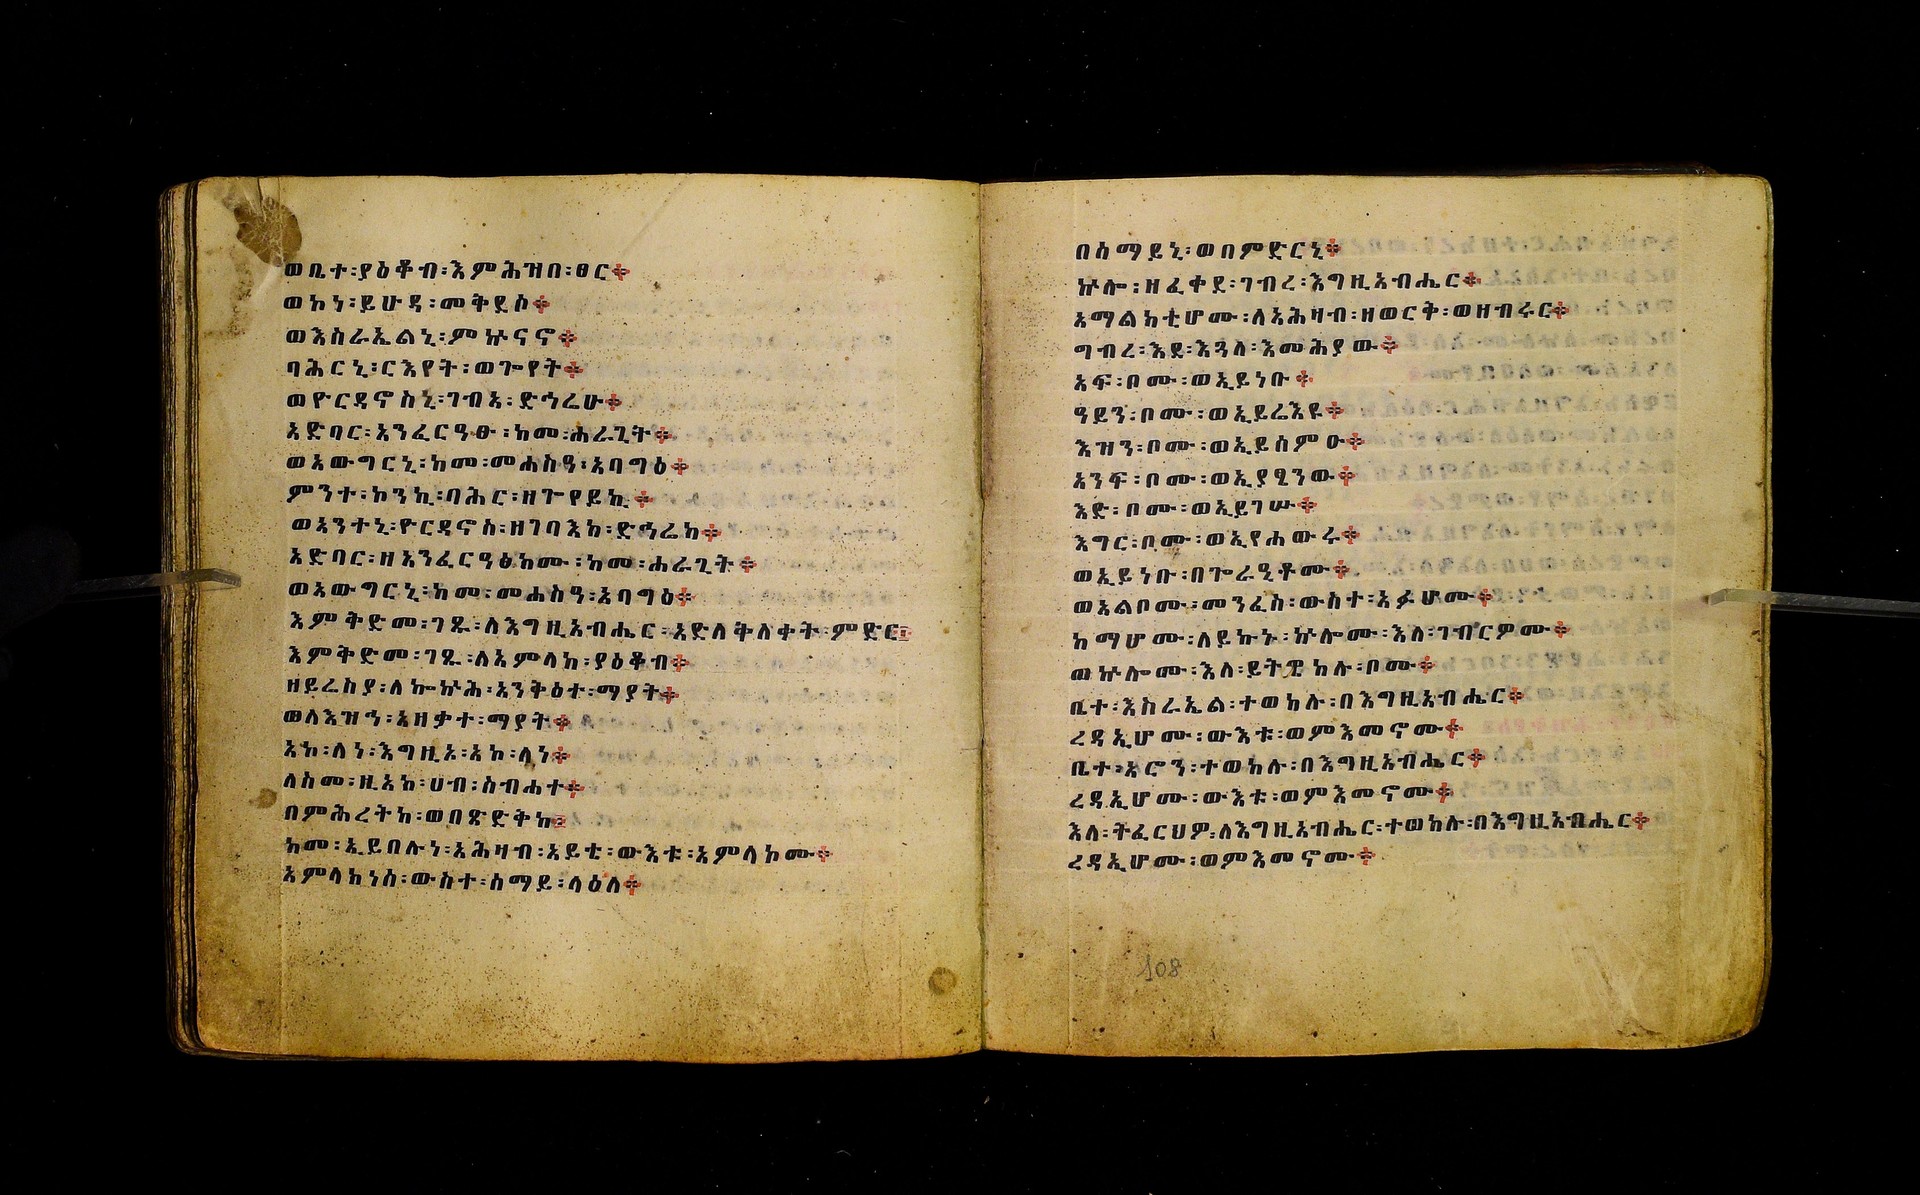 ወቤተ፡ያዕቆብ፡እምሕዝበ፡ፀር፨
ወኮነ፡ይሁዳ፡መቅደስ፨
ወእስራኤልኒ፡ምኵናኖ፨
ባሕርኒ፡ርእየት፡ወጐየት፨
ወዮርዳኖስኒ፡ገብአ፡ድኅሬሁ፨
አድባር፡አንፈርዓፁ፡ከመ፡ሐራጊት፨
ወአውግርኒ፡ከመ፡መሐስዓ፡አባግዕ፨
ምንተ፡ኮንኪ፡ባሕር፡ዘጐየይኪ፨
ወአንተኒ፡ዮርዳኖስ፡ዘገባእከ፡ድኅሬከ፨
አድባር፡ዘአንፈርዓፅክሙ፡ከመ፡ሐራጊት፨
ወአውግርኒ፡ከመ፡መሐስዓ፡አባግዕ፨
እምቅድመ፡ገጹ፡ለእግዚአብሔር፡አድለቅለቀት፡ምድር፨
እምቅድመ፡ገጹ፡ለአምላከ፡ያዕቆብ፨
ዘይረስያ፡ለኰኵሕ፡አንቅዕተ፡ማያት፨
ወለእዝኅ፡አዘቃተ፡ማያት፨
አኮ፡ለነ፡እግዚኦ፡አኮ፡ለነ፨
ለስመ፡ዚአከ፡ሀብ፡ስብሐተ፨
በምሕረትከ፡ወበጽድቅከ፨
ከመ፡ኢይበሉነ፡አሕዛብ፡አይቴ፡ውእቱ፡አምላኮሙ፨
አምላክነሰ፡ውስተ፡ሰማይ፡ላዕለ፨
በሰማይኒ፡ወበምድርኒ፨
ኵሎ፡ዘፈቀደ፡ገብረ፡እግዚአብሔር፨
አማልክቲሆሙ፡ለአሕዛብ፡ዘወርቅ፡ወዘብሩር፨
ግብረ፡እደ፡እጓለ፡እመሕያው፨
አፍ፡ቦሙ፡ወኢይነቡ፨
ዓይን፡ቦሙ፡ወኢይሬእዩ፨
እዝን፡ቦሙ፡ወኢይሰምዑ፨
አንፍ፡ቦሙ፡ወኢያፄንው፨
እድ፡ቦሙ፡ወኢይገሡ፨
እግር፡ቦሙ፡ወኢየሐውሩ፨
ወኢይነቡ፡በጐራዒቶሙ፨
ወአልቦሙ፡መንፈስ፡ውስተ፡አፉሆሙ፨
ከማሆሙ፡ለይኩኑ፡ኵሎሙ፡እለ፡ገብርዎሙ፨
ወኵሎሙ፡እለ፡ይትዌከሉ፡ቦሙ፨
ቤተ፡እስራኤል፡ተወከሉ፡በእግዚአብሔር፨
ረዳኢሆሙ፡ውእቱ፡ወምእመኖሙ፨
ቤተ፡አሮን፡ተወከሉ፡በእግዚአብሔር፨
ረዳኢሆሙ፡ውእቱ፡ወምእመኖሙ፨
እለ፡ትፈርህዎ፡ለእግዚአብሔር፡ተወከሉ፡በእግዚአብሔር፨
ረዳኢሆሙ፡ወምእመኖሙ፨
108